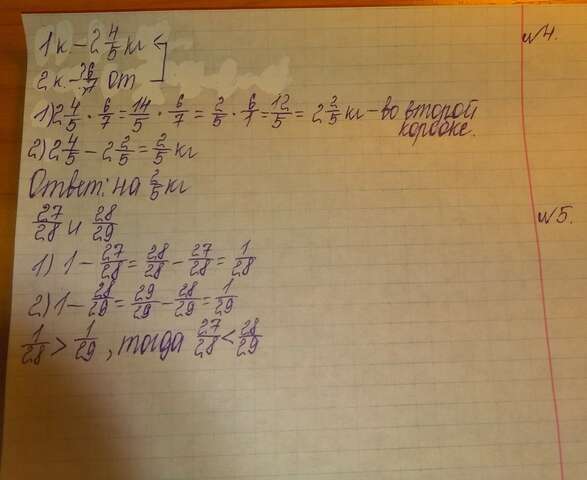 №4.
1к. - 2 4/5 кг
2к. - 6/7 от
1) 2 4/5 · 6/7 = 14/5 · 6/7 = 2/5 · 6/1 = 12/5 = 2 2/5 кг - во второй
коробке.
2) 2 4/5 - 2 2/5 = 2/5 кг
Ответ: на 2/5 кг
№5.
27/28 и 28/29
1) 1 - 27/28 = 28/28 - 27/28 = 1/28
2) 1 - 28/29 = 29/29 - 28/29 = 1/29
1/28 > 1/29, тогда 27/28 < 28/29